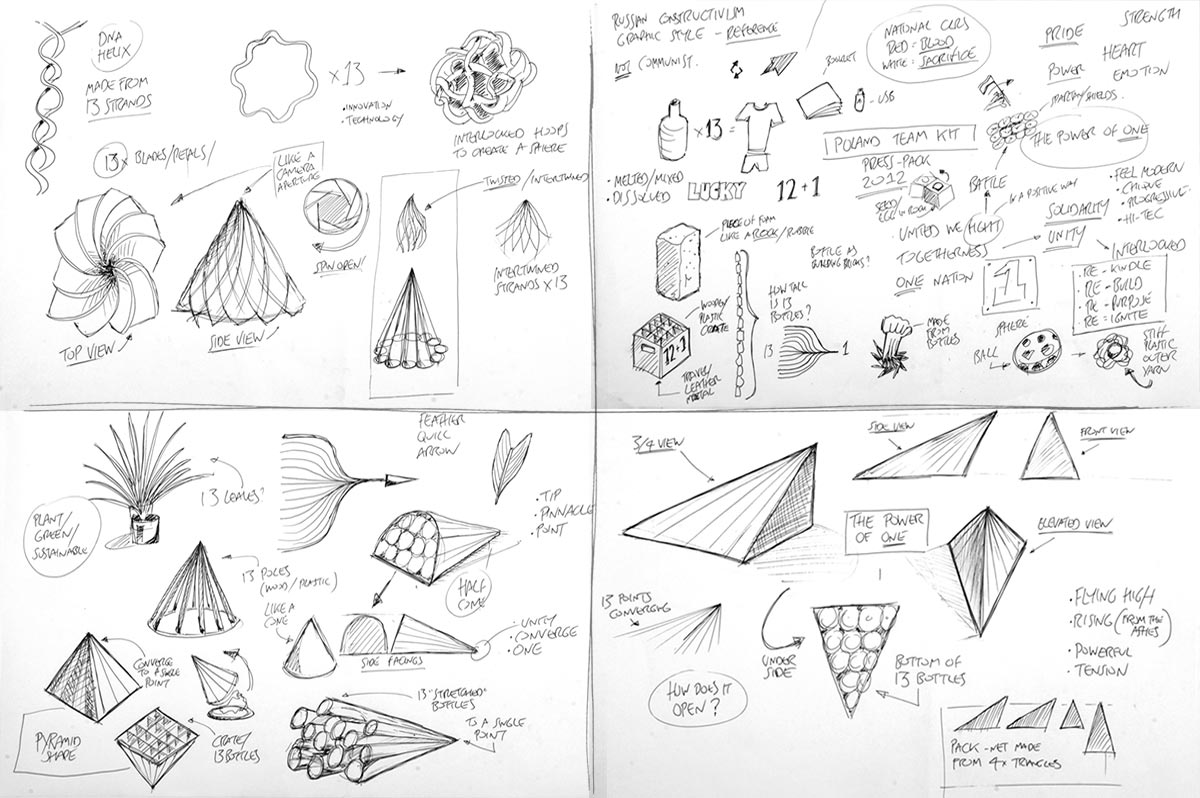 DNA
HELIX
MADE FROM
13 STRANDS
×13
• INNOVATION
• TECHNOLOGY
INTERLOCKED HOOPS
TO CREATE A SPHERE
13× BLADES/PETALS/
LIKE A
CAMERA
APERTURE
SPIN OPEN/
TWISTED/INTERTWINED
INTERTWINED
STRANDS ×13
TOP VIEW
SIDE VIEW
RUSSIAN CONSTRUCTIVISM
GRAPHIC STYLE - REFERENCE
NOT COMMUNIST.
NATIONAL CLRS
RED = BLOOD
WHITE = SACRIFICE
PRIDE
STRENGTH
HEART
POWER
EMOTION
BOOKLET
- USB
SPARTAN/SHIELDS.
×13 =
POLAND TEAM KIT
THE POWER OF ONE
PRESS-PACK
2012
• MELTED/MIXED
• DISSOLVED
LUCKY
12+1
BATTLE
IN A POSITIVE WAY
• FEEL MODERN
• CHIQUE
• PROGRESSIVE
• HI-TEC
SOLIDARITY
UNITED WE FIGHT
UNITY
TOGETHERNESS
INTERLOCKED
ONE NATION
1
• RE-KINDLE
• RE-BUILD
• RE-PURPOSE
• RE-IGNITE
PIECE OF FOAM
LIKE A ROCK/RUBBLE
BOTTLE AS
BUILDING BRICKS?
HOW TALL
IS 13
BOTTLES?
WOODEN/
PLASTIC
CRATE
12+1
LEATHER
METAL
13
1
MADE
FROM
BOTTLES
SPHERE
BALL
STIFF
PLASTIC
OUTER
YARN
13 LEAVES?
PLANT/
GREEN/
SUSTAINABLE
FEATHER
QUILL
ARROW
• TIP
• PINNACLE
• POINT
13 POLES
(WOOD/PLASTIC)
HALF
CONE
LIKE A
CONE
SIDE FACINGS
• UNITY
• CONVERGE
• ONE
CONVERGE
TO A SINGLE
POINT
PYRAMID
SHAPE
CRATE/
13 BOTTLES
13 "STRETCHED"
BOTTLES
TO A SINGLE
POINT
3/4 VIEW
SIDE VIEW
FRONT VIEW
THE POWER
OF ONE
ELEVATED VIEW
13 POINTS
CONVERGING
UNDER
SIDE
BOTTOM OF
13 BOTTLES
HOW DOES IT
OPEN?
• FLYING HIGH
• RISING (FROM THE
ASHES)
• POWERFUL
• TENSION
PACK-NET MADE
FROM 4× TRIANGLES